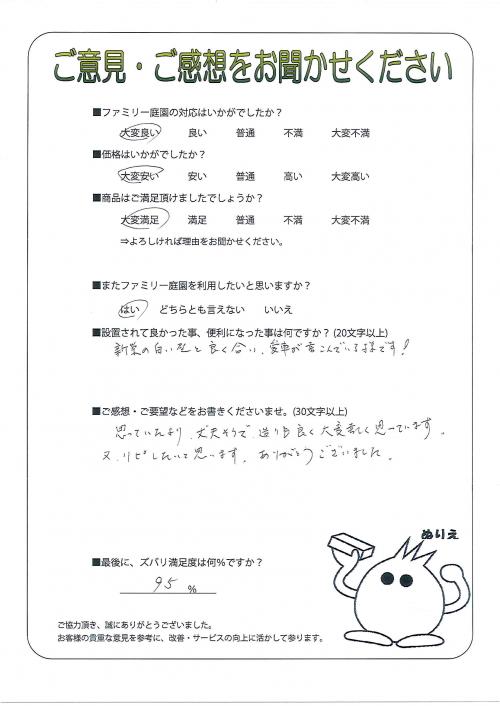 ご意見・ご感想をお聞かせください
■ファミリー庭園の対応はいかがでしたか？
大変良い 良い 普通 不満 大変不満
■価格はいかがでしたか？
大変安い 安い 普通 高い 大変高い
■商品はご満足頂けましたでしょうか？
大変満足 満足 普通 不満 大変不満
⇒よろしければ理由をお聞かせください。
■またファミリー庭園を利用したいと思いますか？
はい どちらとも言えない いいえ
■設置されて良かった事、便利になった事は何ですか？(20文字以上)
新築の白い家と良く合い、愛車が喜こんでいる様です！
■ご感想・ご要望などをお書きくださいませ。(30文字以上)
思っていたより、丈夫そうで、造りも良く大変嬉しく思っています。
又、リピしたいと思います。ありがとうございました。
ぬりえ
■最後に、ズバリ満足度は何％ですか？
95 %
ご協力頂き、誠にありがとうございました。
お客様の貴重な意見を参考に、改善・サービスの向上に活かして参ります。